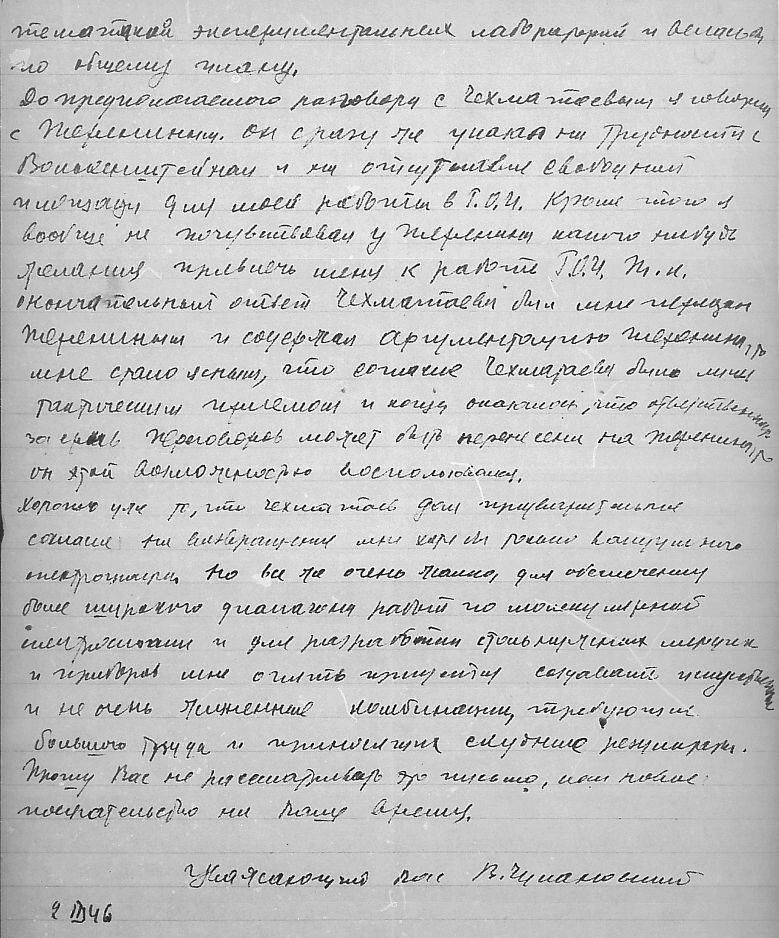 тематикой экспериментальных лабораторий и
по общему плану.
До предполагаемого разговора с Чехматаевым я говорил
с Терениным. Он сразу же указал на трудности с
и на отсутствие свободной
площади для моей работы в Г.О.И. Кроме того я
вообще не почувствовал у Теренина какого нибудь
желания привлечь меня к работе Г.О.И. Т.к.
окончательный ответ Чехматаева был мне передан
Терениным и содержал аргументацию Теренина, то
мне стало ясным, что согласие Чехматаева было лишь
тактическим приемом и когда оказалось, что ответственность
за срыв переговоров может быть перенесена на Теренина, то
он этой возможностью воспользовался.
Хорошо уже то, что Чехматаев дал предварительное
согласие на возвращение мне хотя бы только вакуумного
Но все же очень жалко, для обеспечения
более широкого диапазона работ по молекулярной
и для разработки столь нужных методик
и приборов мне опять придется создавать искусственные
и не очень жизненные комбинации, требующие
большого труда и приносящие скудные результаты.
Прошу Вас не рассматривать это письмо, как новое
посягательство на Ваше время.
Уважающий Вас В. Чулановский
2 III 46